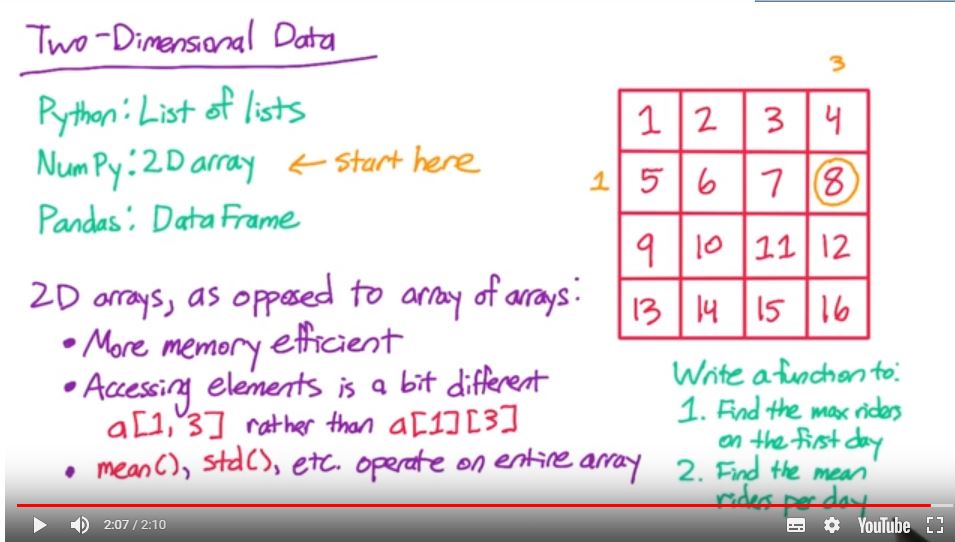 Two-Dimensional Data
Python: List of lists
NumPy: 2D array ← start here
Pandas: DataFrame
2D arrays, as opposed to array of arrays:
• More memory efficient
• Accessing elements is a bit different
a[1,3] rather than a[1][3]
• mean(), std(), etc. operate on entire array
3
1 2 3 4
1 5 6 7 8
9 10 11 12
13 14 15 16
Write a function to:
1. Find the max riders
on the first day
2. Find the mean
riders per day
2:07 / 2:10
YouTube